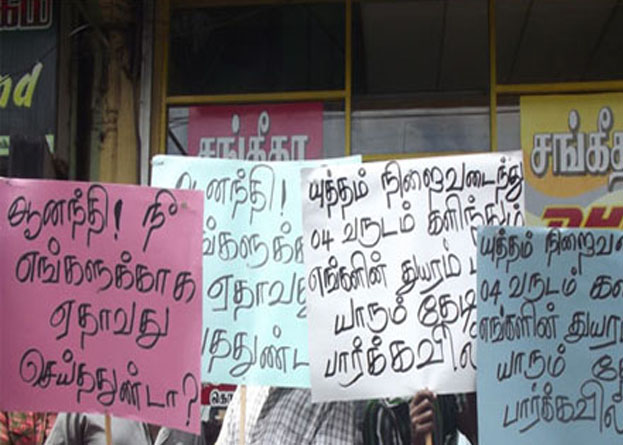 சங்கீதா
சங்கீத
ஆனந்தி! நீ
எங்களுக்காக
ஏதாவது
செய்ததுண்டா?
ஆனந்தி!
ஏதாவது
யுத்தம் நிறைவடைந்து
04 வருடம் கழிந்தும்
எங்களின் துயரம்
யாரும் தேடி
பார்க்கவில்
யுத்தம்
04 வருடம்
எங்களின்
யாரும்
பார்க்கவில்